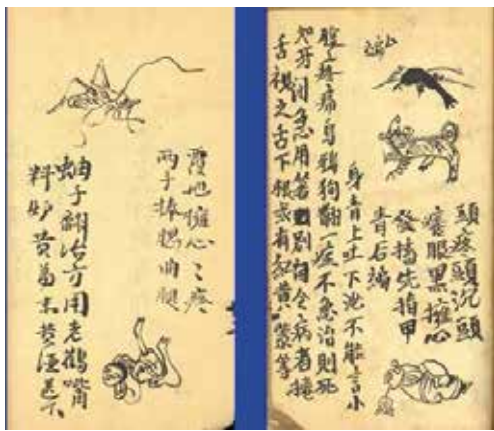 頭疼頭沉頭
眼黑擁心
發搐先指甲
青后遍
身青上吐下泄不能言小
腹疼痛烏鴉狗翻一症不急治則死
牙関急用箸別開令病者捲
舌視之舌下根或有紅黃紫等
覆地擁心之疼
兩手捧曲腿
蛐子翻治方用老鸛嘴
料炒黃為末黃酒送下